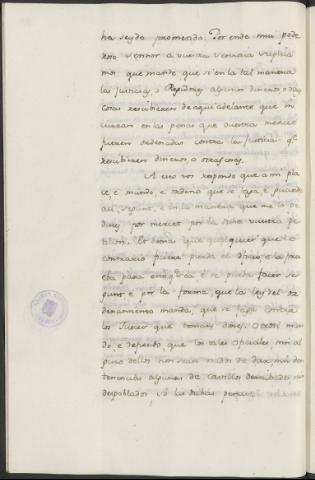 ha seydo prometido. Por ende mui pode
roso Sennor a vuestra Sennoria suplica
mos que mande, que si en la tal manera
las Justicias, o Regidores algunos dineros, o otras
cosas rescibieren de aqui adelante que in
curran en las penas que vuestra merced
fueren ordenadas contra las Justicias q.
rescibieren dineros, o otras cosas.
A eso vos respondo que a mi pla
ce, e mando, e ordeno que se faga, e guarde
asi, segunt, e en la manera que me lo pe
distes por merced por la dicha vuestra pe
ticion. E demas que qualquier que lo
contrario ficiere pierda el oficio, e la pru
eba para esto sea e se pueda facer se
gunt e por la forma, que la ley del or
denamiento manda, que se faga contra
los Jueces que toman dones. Otrosi man
do, e defiendo, que los tales oficiales, nin al
guno dellos non sean osados de dar, nin den
tenencias algunas de castillos derribados, nin
despoblados, so las dichas penas.